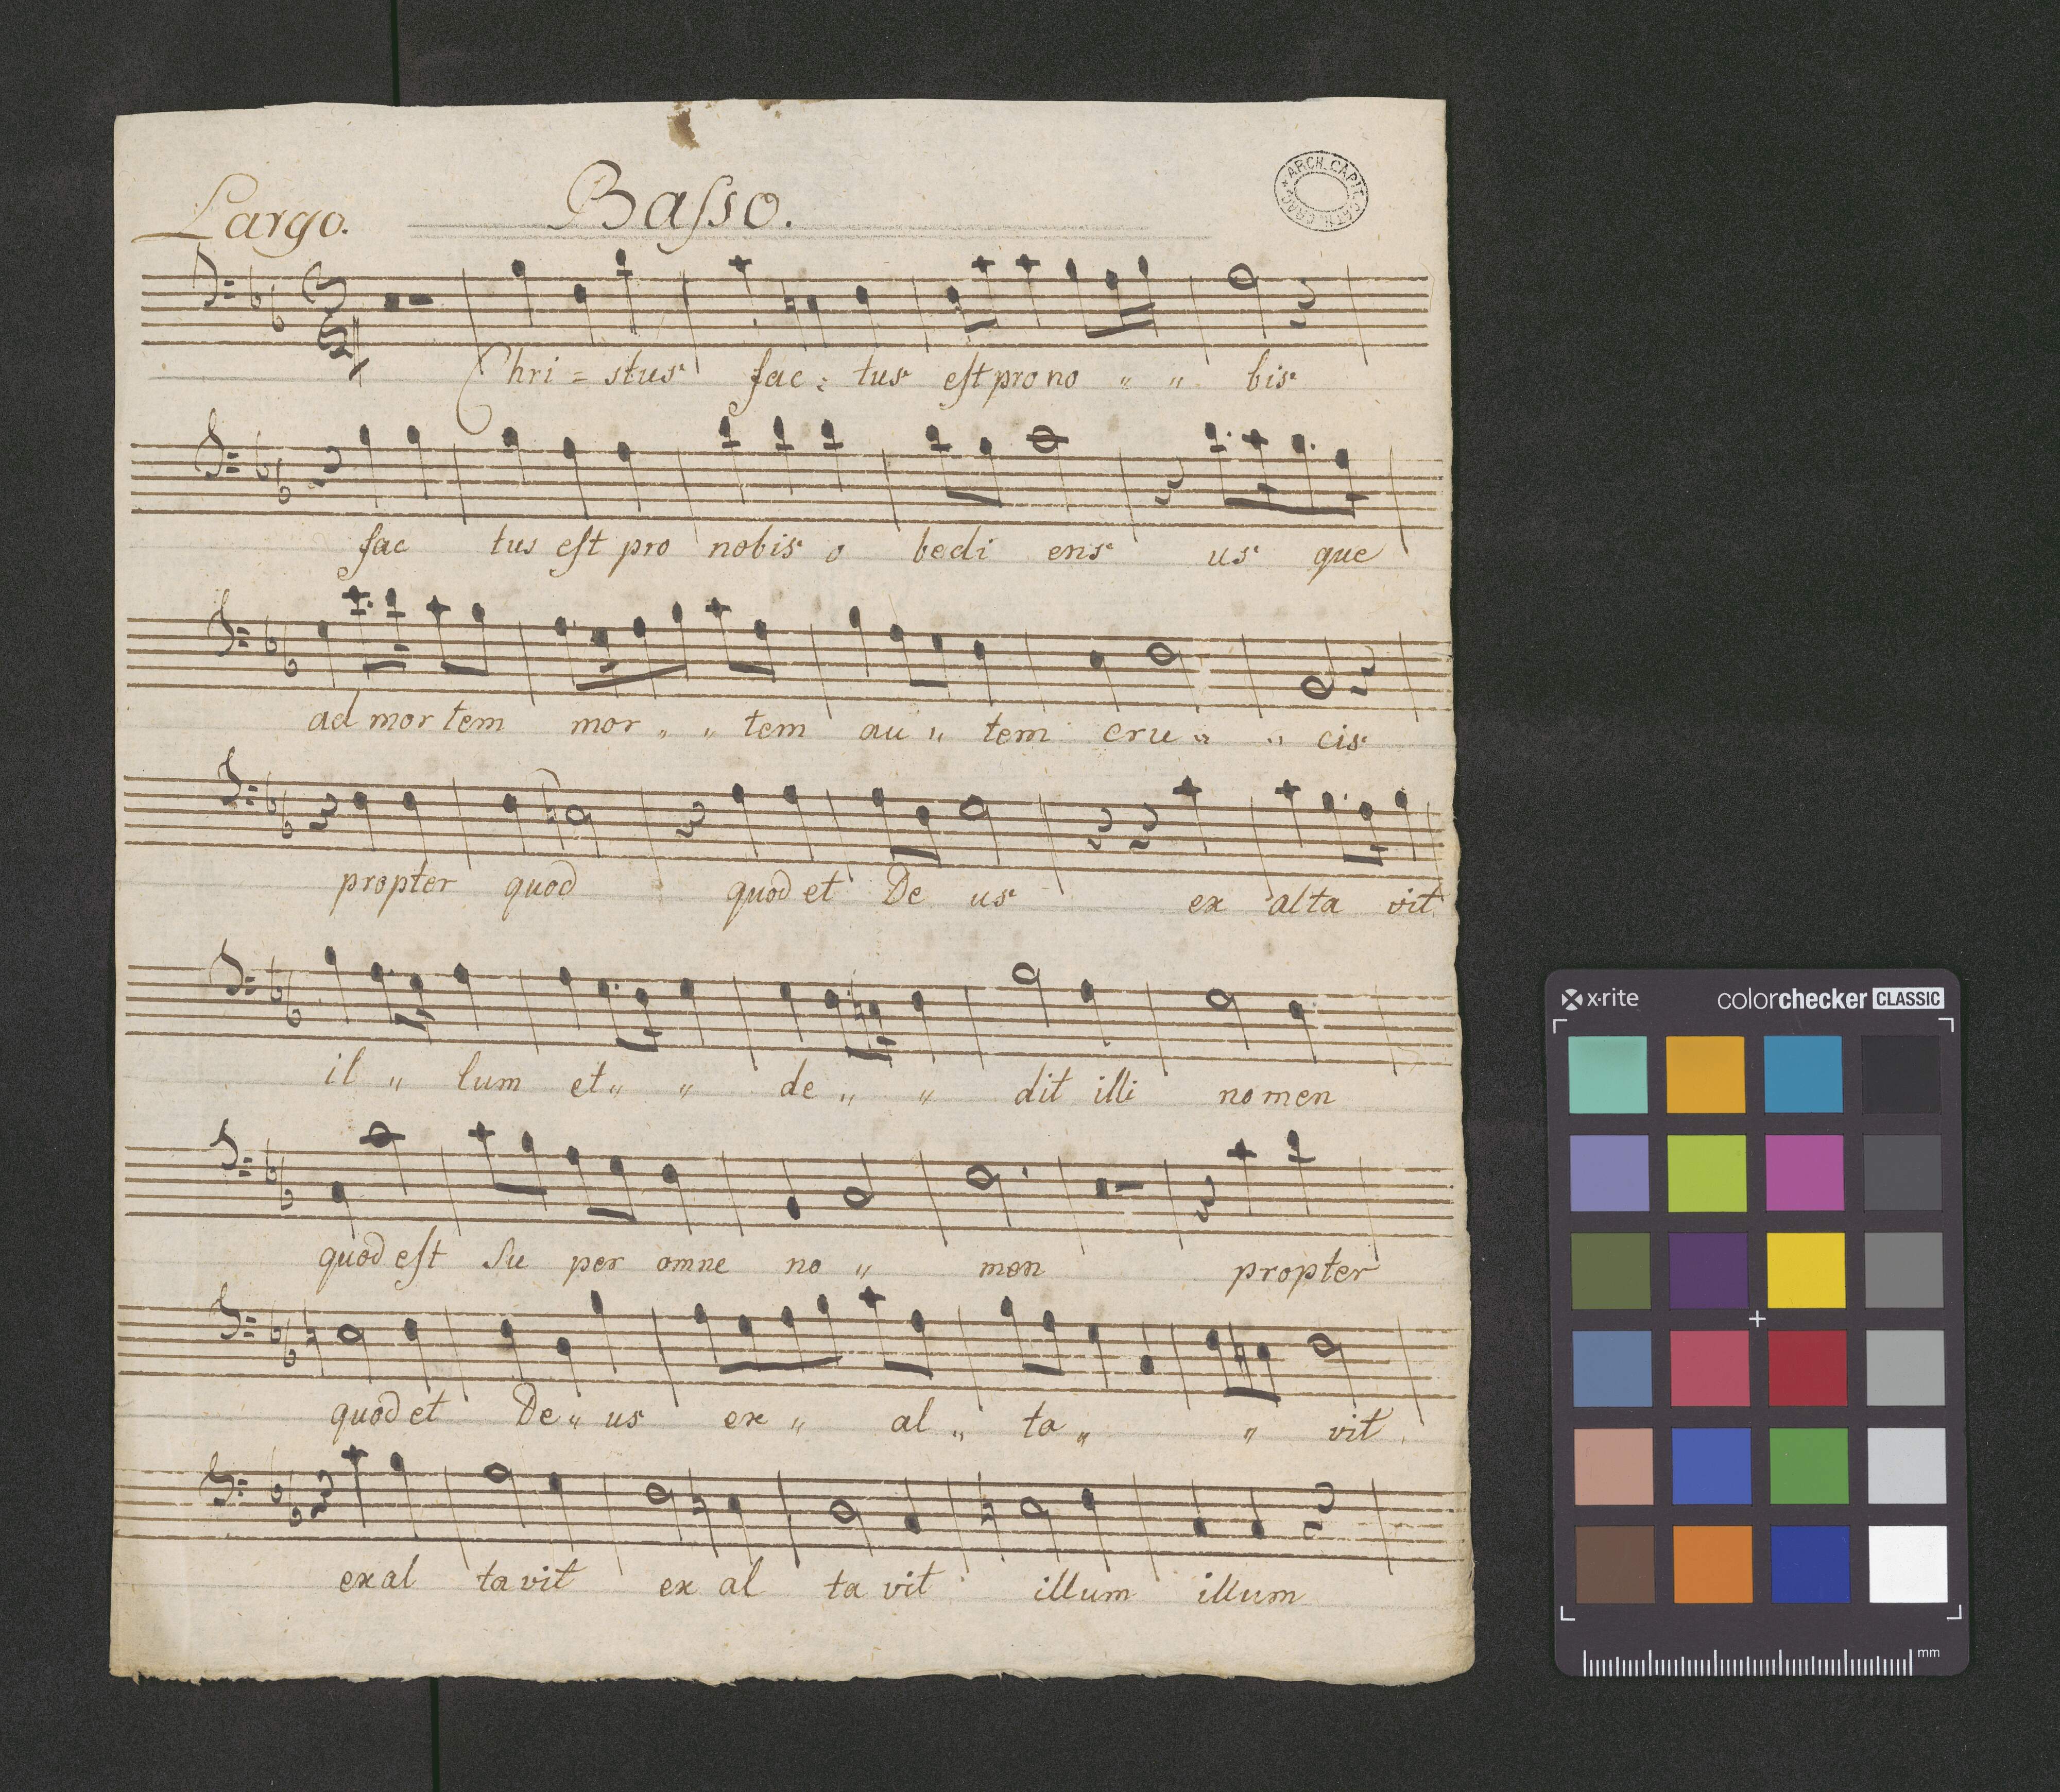 Largo.
Baſso.
ARCH. CAPIT. CATH. CRAC.
Chri = stus fac : tus eſt pro no „ „ bis
fac tus eſt pro nobis o bedi ens us que
ad mor tem mor „ „ tem au „ tem cru „ „ cis
propter quod quod et De us ex alta vit
il „ lum et „ „ de „ „ dit illi nomen
quod eſt Su per omne no „ men propter
quod et De „ us ex „ al „ ta „ „ vit
ex al ta vit ex al ta vit illum illum
x·rite colorchecker CLASSIC
mm